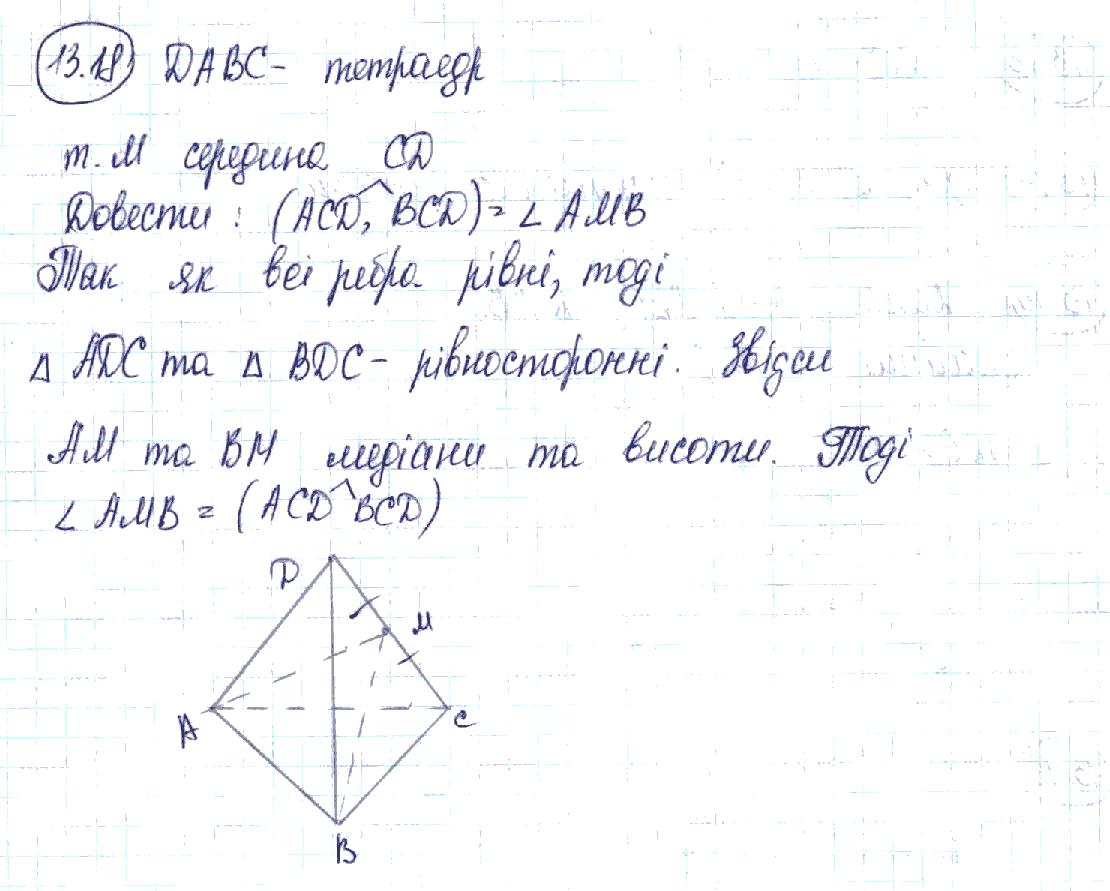 13.18 DABC - тетраедр
т. М середина CD
Довести: (ACD, ^ BCD) = ∠ AMB
Так як всі ребра рівні, тоді
Δ ADC та Δ BDC - рівносторонні. Звідси
АМ та ВМ медіани та висоти. Тоді
∠ AMB = (ACD ^ BCD)
D
М
А
С
В